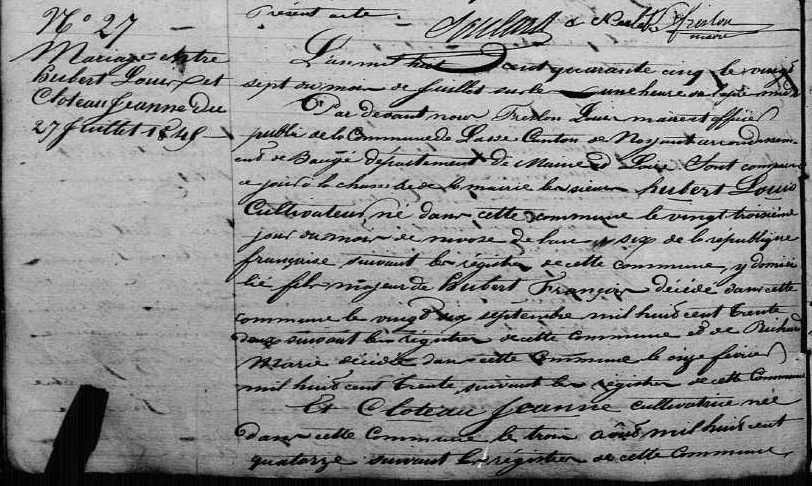 présent acte.
Freslon
maire
N° 27
Mariage entre
hubert Louis et
Cloteau Jeanne du
27 Juillet 1845
L'an mil huit cent quarante cinq le vingt
sept du mois de juillet sur les une heure de l'après midi
Par devant nous Freslon maire et officier
public de la Commune de Lasse Canton de Noyant arrondissem
ent de Baugé département de Maine et Loire Sont comparu
ce jour à la chambre de la mairie les sieur hubert Louis
Cultivateur, né dans cette commune le vingt troisième
jour du mois de nivose de l'an six de la république
française suivant les régistres de cette commune, y domici
lié fils majeur de hubert François décédé dans cette
commune le vingt six septembre mil huit cent trente
deux suivant les régistres de cette commune et de Richard
Marie décédée dans cette Commune le onze février
mil huit cent trente, suivant les régistres de cette Commune
Et Cloteau Jeanne cultivatrice née
dans cette Commune le trois août mil huit cent
quatorze suivant les régistres de cette Commune,